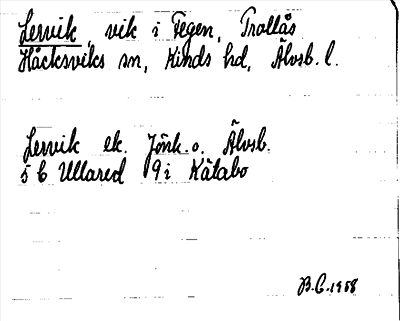 Lervik, vik i Fegen, Trollås
Håcksviks sn, Kinds hd, Älvsb. l.
Lervik ek. Jönk. o. Älvsb.
5 C Ullared 9 i Kätabo
B.G. 1958